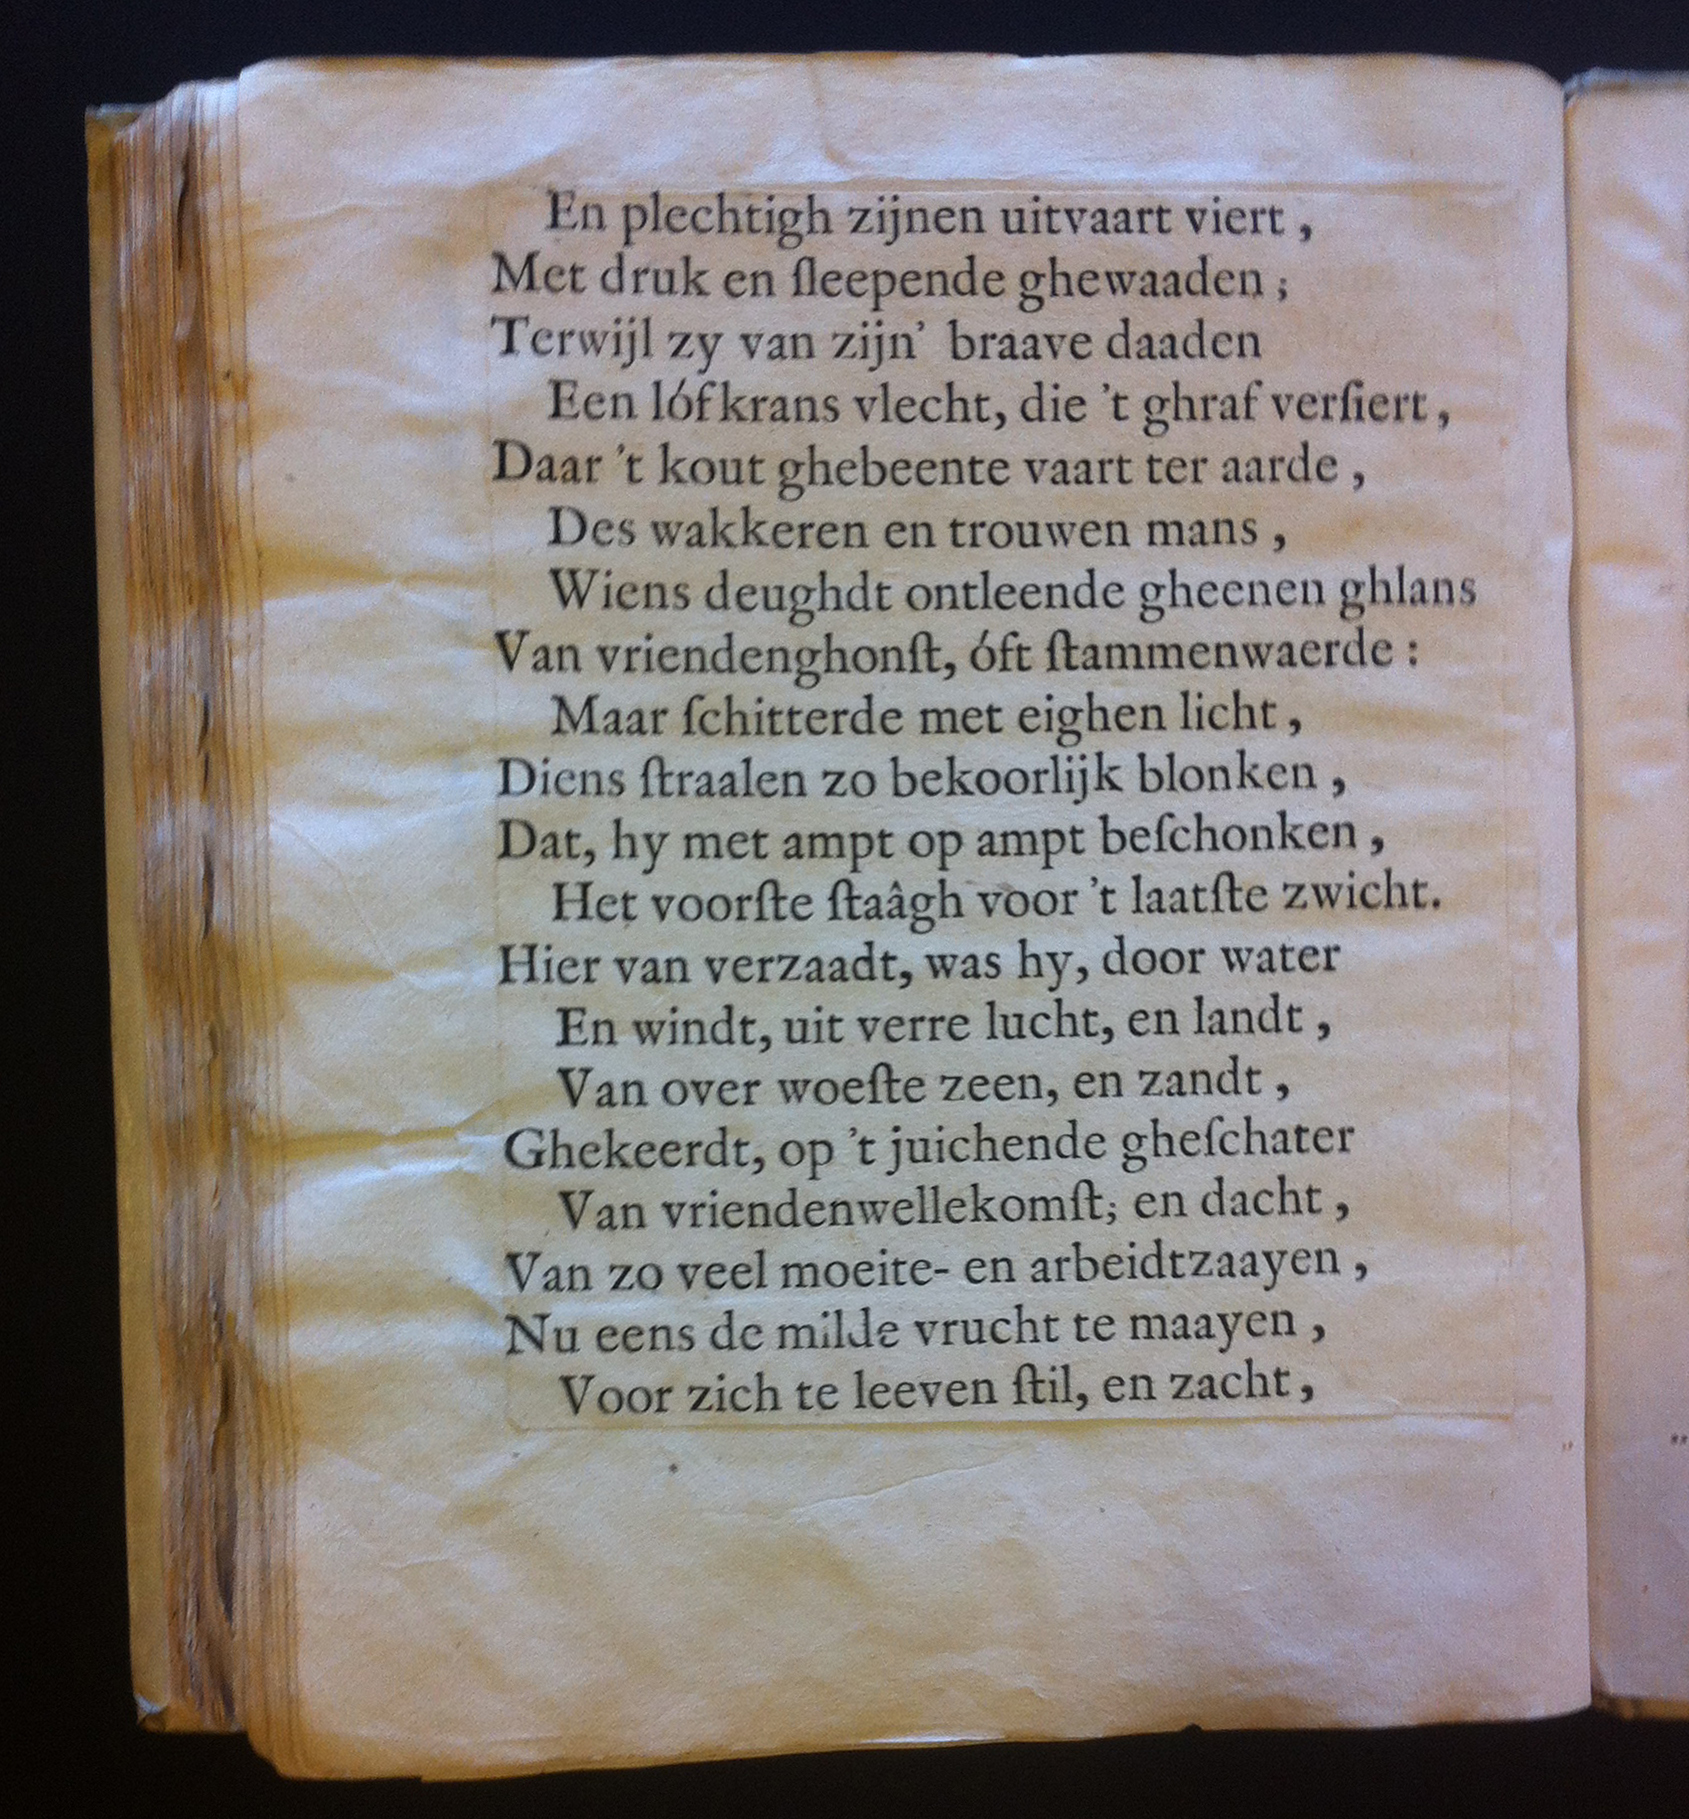 En plechtigh zijnen uitvaart viert,
Met druk en ſleepende ghewaaden;
Terwijl zy van zijn' braave daaden
Een lófkrans vlecht, die 't ghraf verſiert,
Daar 't kout ghebeente vaart ter aarde,
Des wakkeren en trouwen mans,
Wiens deughdt ontleende gheenen ghlans
Van vriendenghonſt, óft ſtammenwaerde:
Maar ſchitterde met eighen licht,
Diens ſtraalen zo bekoorlijk blonken,
Dat, hy met ampt op ampt beſchonken,
Het voorſte ſtaâgh voor 't laatſte zwicht.
Hier van verzaadt, was hy, door water
En windt, uit verre lucht, en landt,
Van over woeſte zeen, en zandt,
Ghekeerdt, op 't juichende gheſchater
Van vriendenwellekomſt; en dacht,
Van zo veel moeite- en arbeidtzaayen,
Nu eens de milde vrucht te maayen,
Voor zich te leeven ſtil, en zacht,